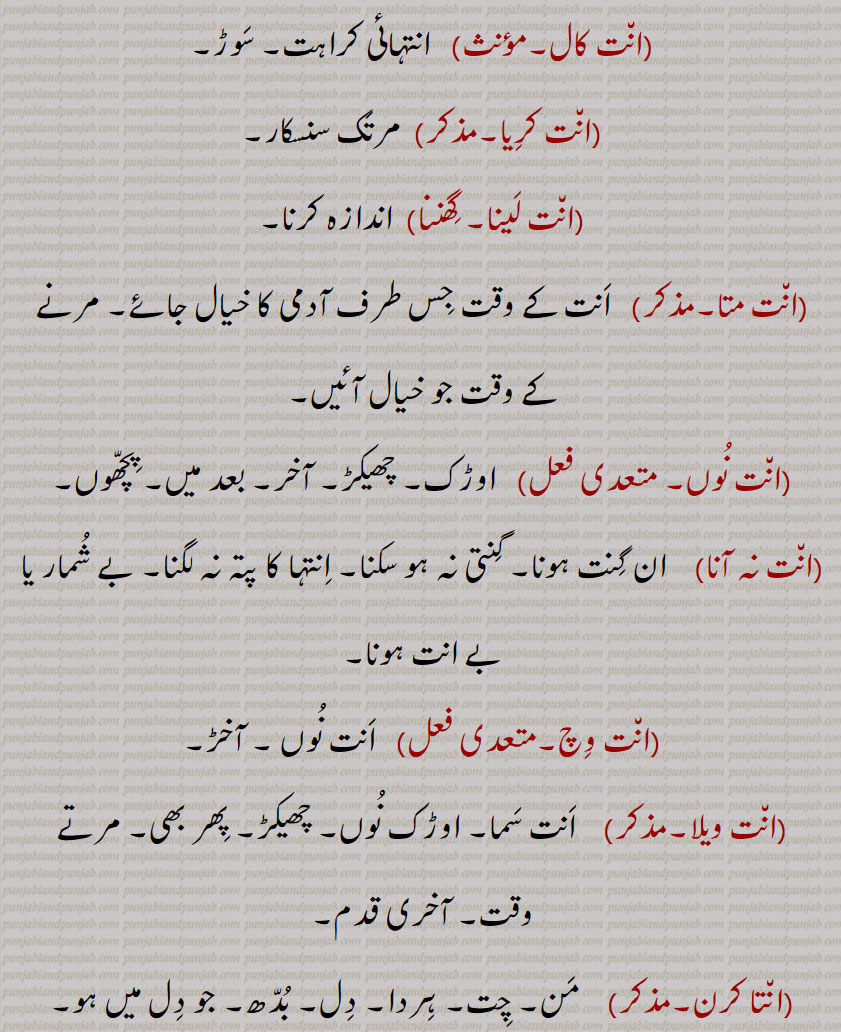 (انّت کال۔مؤنث) انتہائی کراہت۔ سَوڑ۔
(انّت کرِیا۔مذکر) مرتگ سنسکار۔
(انّت لَینا۔ گِھننا) اندازہ کرنا۔
(انّت متا۔مذکر) اَنت کے وقت جِس طرف آدمی کا خیال جائے۔ مرنے
کے وقت جو خیال آئیں۔
(انّت نُوں۔ متعدی فعل) اوڑک۔ چھیکڑ۔ آخر۔ بعد میں۔ پِچھّوں۔
(انّت نہ آنا) ان گِنت ہونا۔ گِنتی نہ ہو سکنا۔ اِنتہا کا پتہ نہ لگنا۔ بے شُمار یا
بے انت ہونا۔
(انّت وِچ۔متعدی فعل) اَنت نُوں ۔ آخڑ۔
(انّت ویلا۔مذکر) اَنت سَما۔ اوڑک نُوں۔ چھیکڑ۔ پِھر بھی۔ مرتے
وقت۔ آخری قدم۔
(انّتا کرن۔مذکر) مَن۔ چِت۔ ہِردا۔ دِل۔ بُدّھ۔ جو دِل میں ہو۔